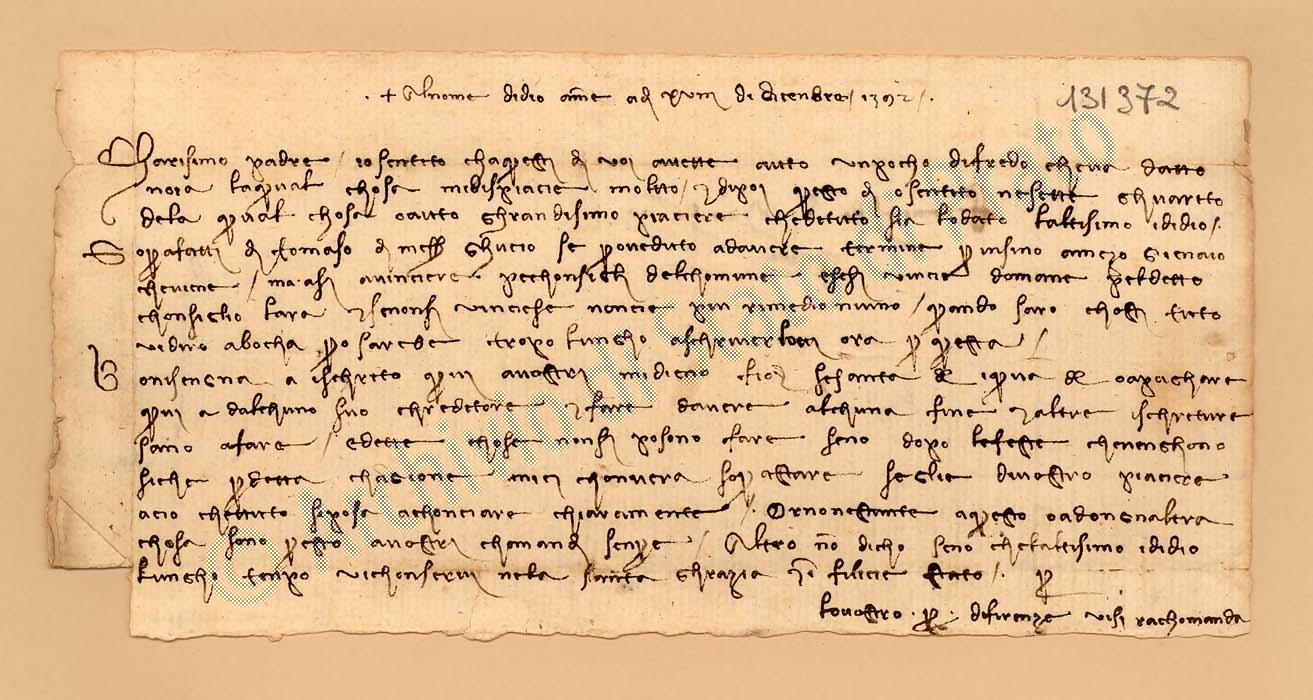 + Al nome di dio ame adi XVIII di dicenbre 1392
131372
Charisimo padre / io sentito cha questi di voi avette auto un pocho di fredo che va datto
noia la qual chosa mi dispiacie molto / e dipoi questo di o sentito ne sette ghuaretto
dela qual chosa o auto ghrandisimo piaciere che detuto sia lodato l altisimo ididio /
Sopra fatti di Tomaso di mess Ghucio se proveduto ad avere termine per insino a mezo gienaio
che viene / ma asi a vinciere pe chonsigli del chomune e se si vincie domane pel detto
chonsiglio l ara e se non si vinciese non cie piu rimedio niuno / quando saro chosti tuto
vi diro a bocha pero sarebe tropo lungho a schriver ora per questa /
Bonisengna a ischrito qui a vostri mi dieno fior sesanta e o a paghare
qui a dalchuno suo chreditore e fare davere alchuna fine e altre ischriture
sano a fare / e dette chose non si posono fare seno dopo le feste che venghono
siche per detta chagione mi ci chonvera sopr astare se glie di vostro piaciere
acio che tuto si posa achonciare chiaramente / Or nonestante a questo o ad ongn altra
chosa sono presto a vostri chomandi senpre / Altro no dicho seno che l altisimo ididio
lungho tenpo vi chonservi nela santa ghrazia in filicie stato / per
lo vostro di firenze vi si rachomanda